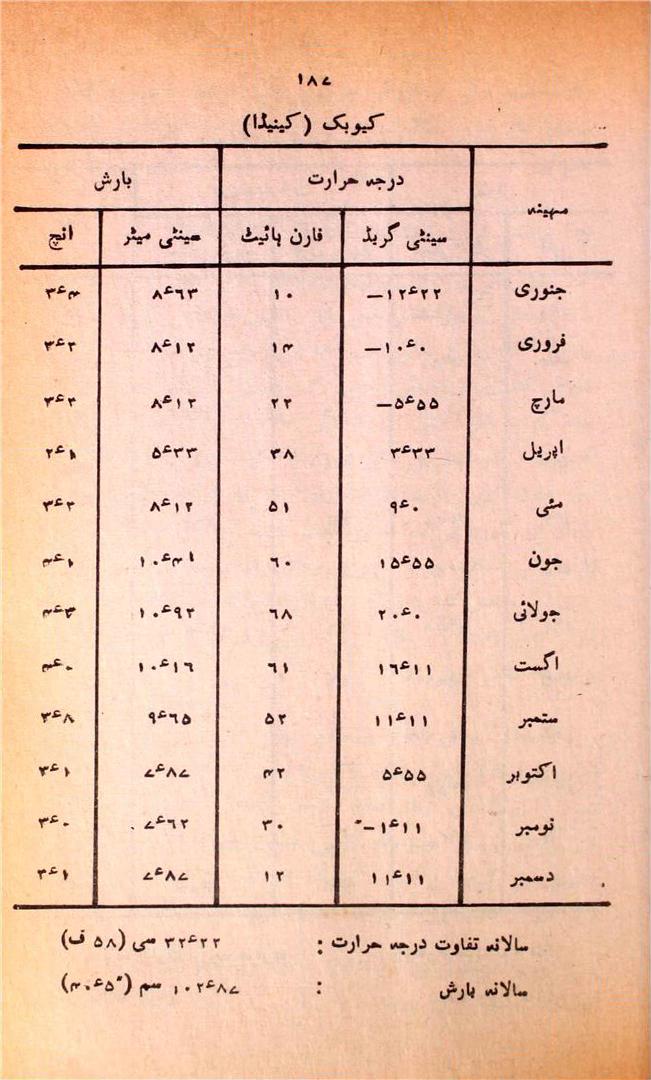 ۱۸۷
کیوبک (کینیڈا)
مہینہ درجہ حرارت بارش
سینٹی گریڈ فارن ہائیٹ سینٹی میٹر انچ
جنوری −۱۲ء۲۲ ۱۰ ۸ء۶۳ ۳ء۴
فروری −۱۰ء۰ ۱۴ ۸ء۱۲ ۳ء۲
مارچ −۵ء۵۵ ۲۲ ۸ء۱۲ ۳ء۲
اپریل ۳ء۳۳ ۳۸ ۵ء۳۳ ۲ء۱
مئی ۹ء۰ ۵۱ ۸ء۱۲ ۳ء۲
جون ۱۵ء۵۵ ۶۰ ۱۰ء۴۱ ۴ء۱
جولائی ۲۰ء۰ ۶۸ ۱۰ء۹۲ ۴ء۳
اگست ۱۶ء۱۱ ۶۱ ۱۰ء۱۶ ۴ء۰
ستمبر ۱۱ء۱۱ ۵۲ ۹ء۶۵ ۳ء۸
اکتوبر ۵ء۵۵ ۴۲ ۷ء۸۷ ۳ء۱
نومبر −۱ء۱۱ ۳۰ ۷ء۶۲ ۳ء۰
دسمبر ۱۱ء۱۱ ۱۲ ۷ء۸۷ ۳ء۱
سالانہ تفاوت درجہ حرارت : ۳۲ء۲۲ سی (۵۸ ف)
سالانہ بارش : ۱۰۲ء۸۷ سم (۴۰ء۵")